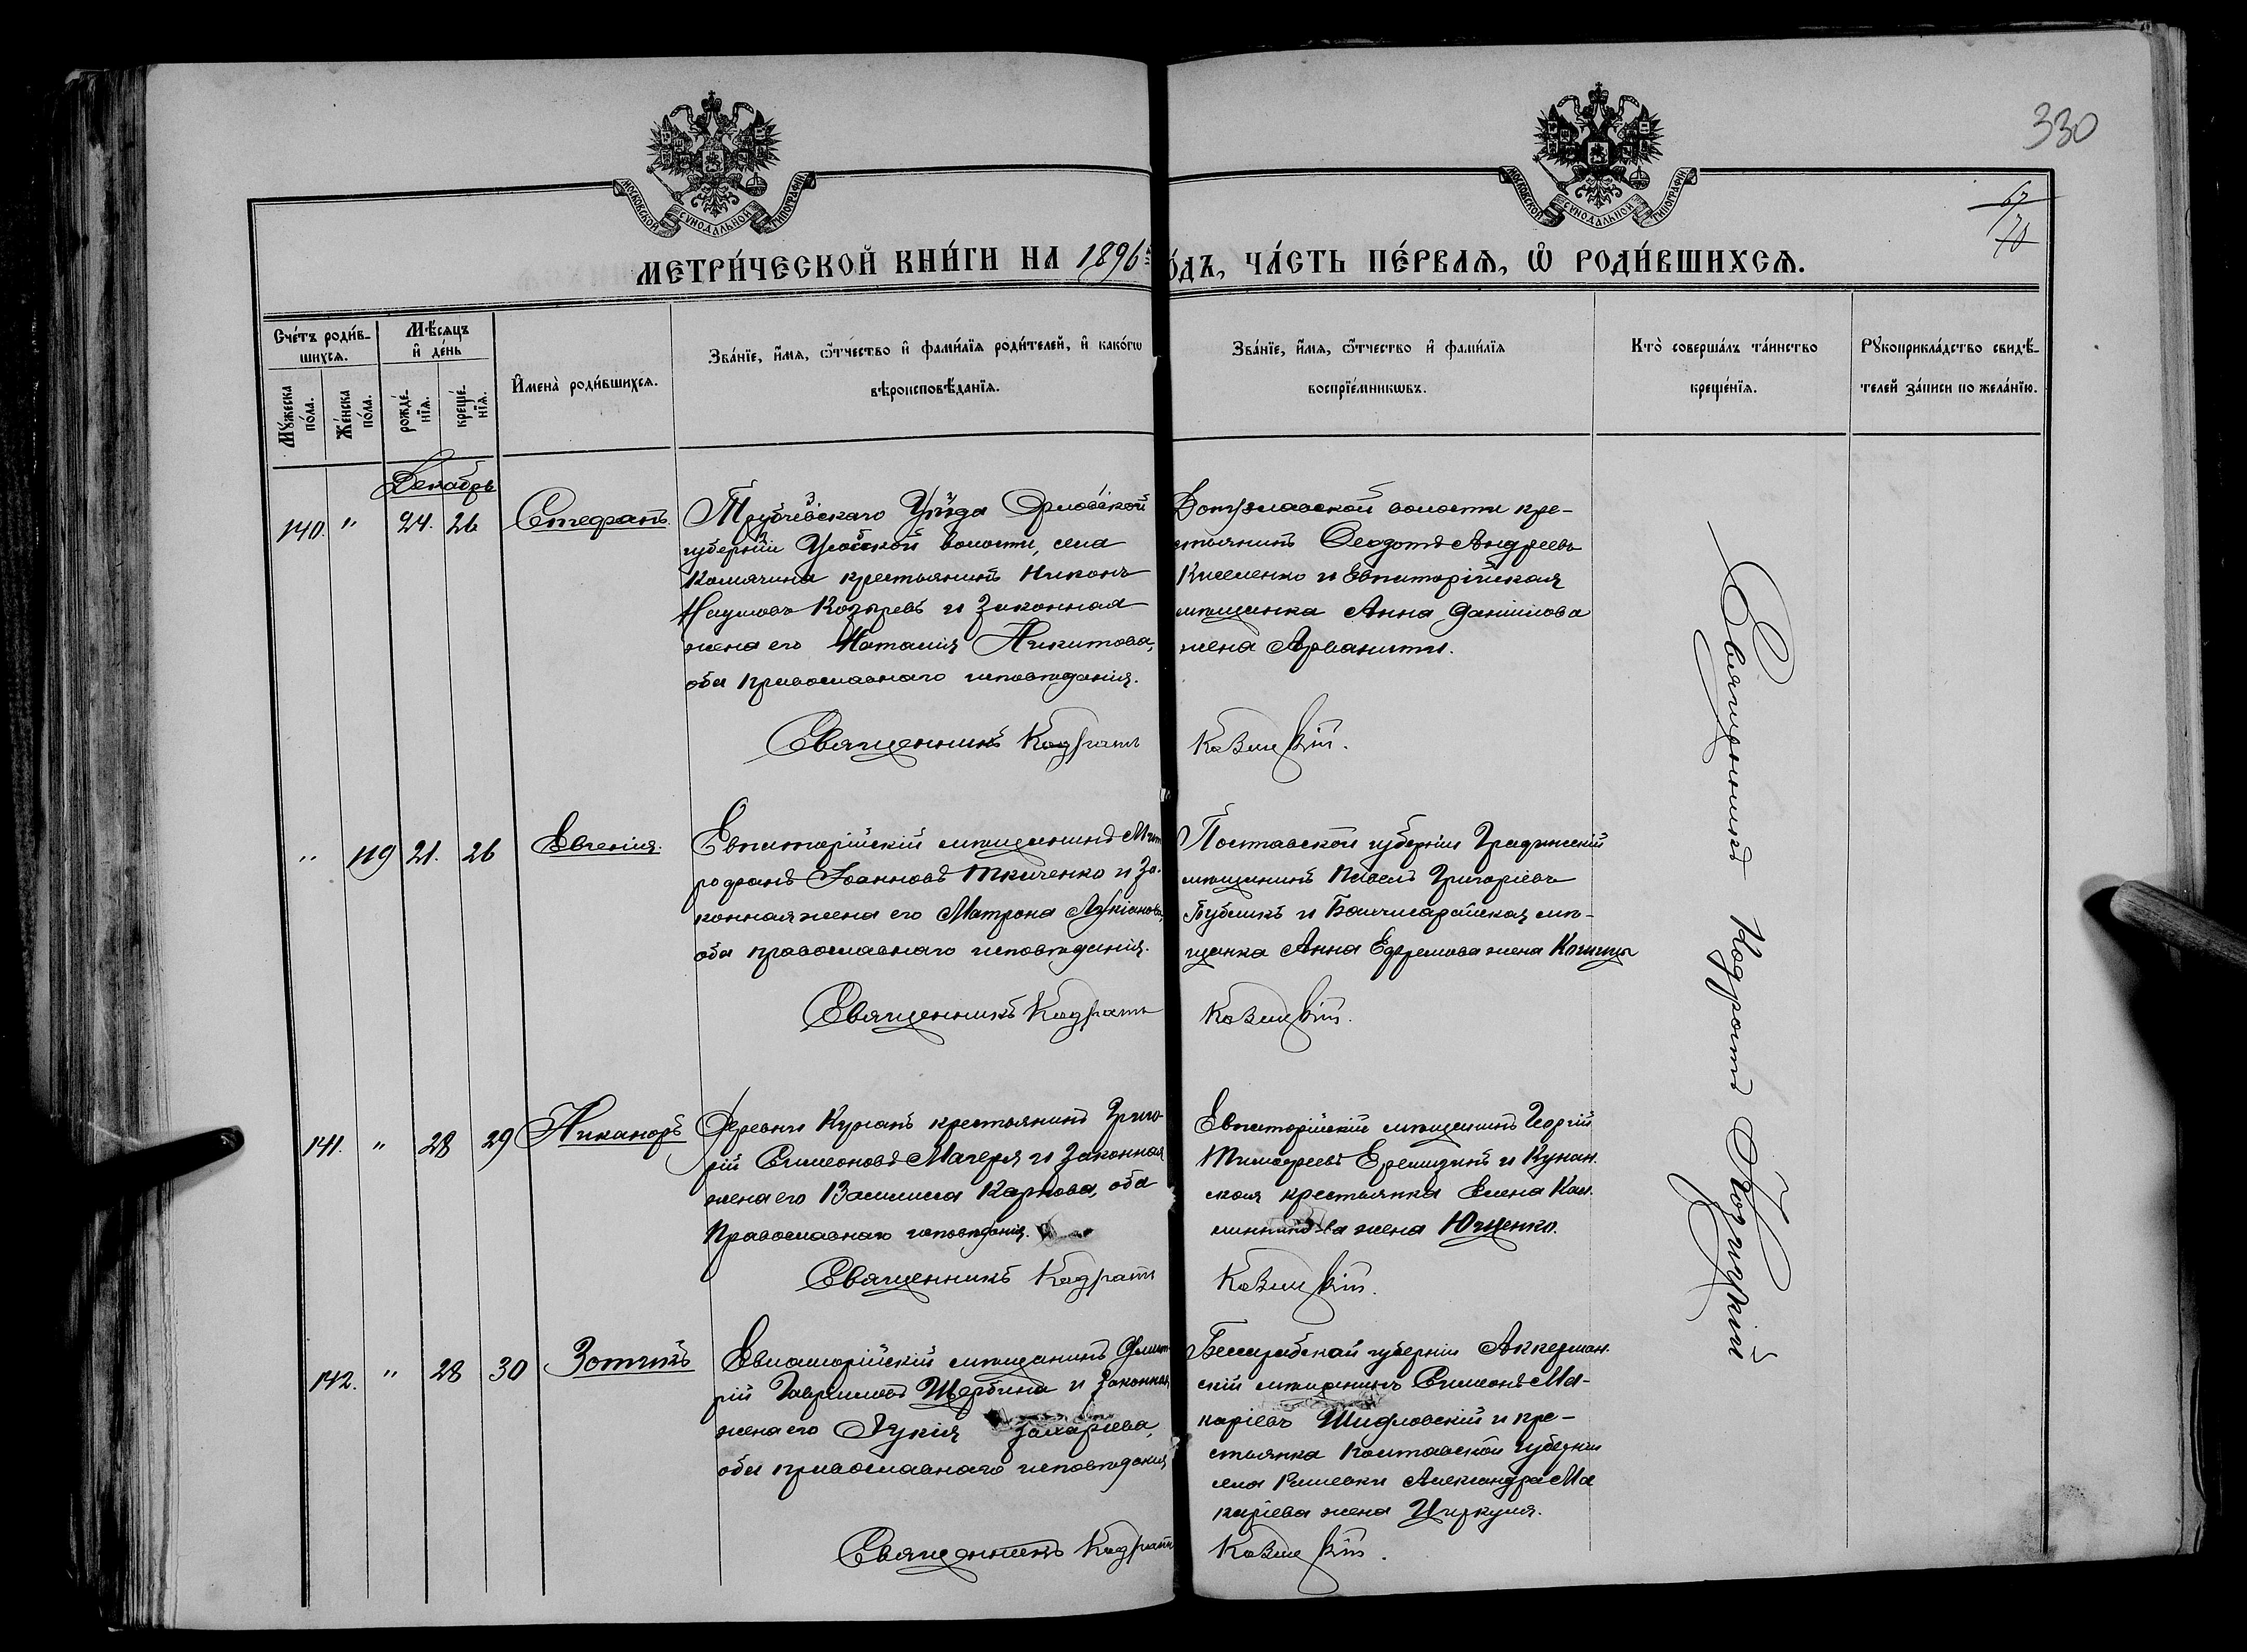 330
МОСКОВСКОЙ СѴНОДАЛЬНОЙ ТИПОГРАФІИ
МОСКОВСКОЙ СѴНОДАЛЬНОЙ ТИПОГРАФІИ
МЕТРИ́ЧЕСКОЙ КНИ́ГИ НА 1896 го́дъ, ЧА́СТЬ ПЕ́РВАѦ, Ѡ РОДИ́ВШИХСѦ.
Сче́тъ роди́в-
шихсѧ.
Му́жеска по́ла.
Же́нска по́ла.
Мѣ́сѧцъ
и҆ де́нь
рожде́-
нїѧ.
креще́-
нїѧ.
И҆мена̀ роди́вшихсѧ.
Зва́нїе, и҆́мѧ, ѻ҆́тчество и҆ фами́лїѧ роди́телей, и҆ како́гѡ
вѣроисповѣ́данїѧ.
Зва́нїе, и҆́мѧ, ѻ҆́тчество и҆ фами́лїѧ
воспрїе́мникѡвъ.
Кто̀ соверша́лъ та́инство
креще́нїѧ.
Рꙋкоприкла́дство свидѣ́-
телей за́писи по жела́нїю.
Декабрь
140. " 24. 26 Стефанъ.
Трубчевскаго Уѣзда Орловской
губерніи Усобской волости, села
крестьянинъ Никонъ
Наумовъ Козыревъ и законная
жена его Наталія Никитова,
оба православнаго исповѣданія.
Священникъ Кодратъ
волости кре-
стьянинъ Ѳеодотъ Андреевъ
Киселенко и Евпаторійская
мѣщанка Анна Даніилова
жена Арванити.
" 119 21. 26 Евгенія.
Евпаторійскій мѣщанинъ Мит
рофанъ Іоанновъ Ткаченко и за-
конная жена его Матрона Лукіанова,
оба православнаго исповѣданія.
Священникъ Кодратъ
Полтавской губерніи Градижскій
мѣщанинъ Павелъ Григоріевъ
и Бахчисарайская мѣ-
щанка Анна Ефремова жена
141. " 28 29 Никаноръ
Деревни Курганъ крестьянинъ Григо-
рій Симеоновъ Мачеря и законная
жена его Василисса Карпова, оба
Православнаго исповѣданія.
Священникъ Кодратъ
Евпаторійскій мѣщанинъ Георгій
Тимофеевъ и
ская крестьянка Елена Кон-
жена Ющенко.
142. " 28 30 Зотикъ
Евпаторійскій мѣщанинъ Дмит-
рій Гавриловъ Щербина и законная
жена его Лукія Захаріева,
оба православнаго исповѣданія
Священникъ Кодратъ
Бессарабской губерніи Аккерман-
скій мѣщанинъ Симеонъ Ма-
каріевъ Шидловскій и кре-
стьянка Полтавской губерніи
села Александра Ма
каріева жена Циркуля.
Священникъ Кодратъ